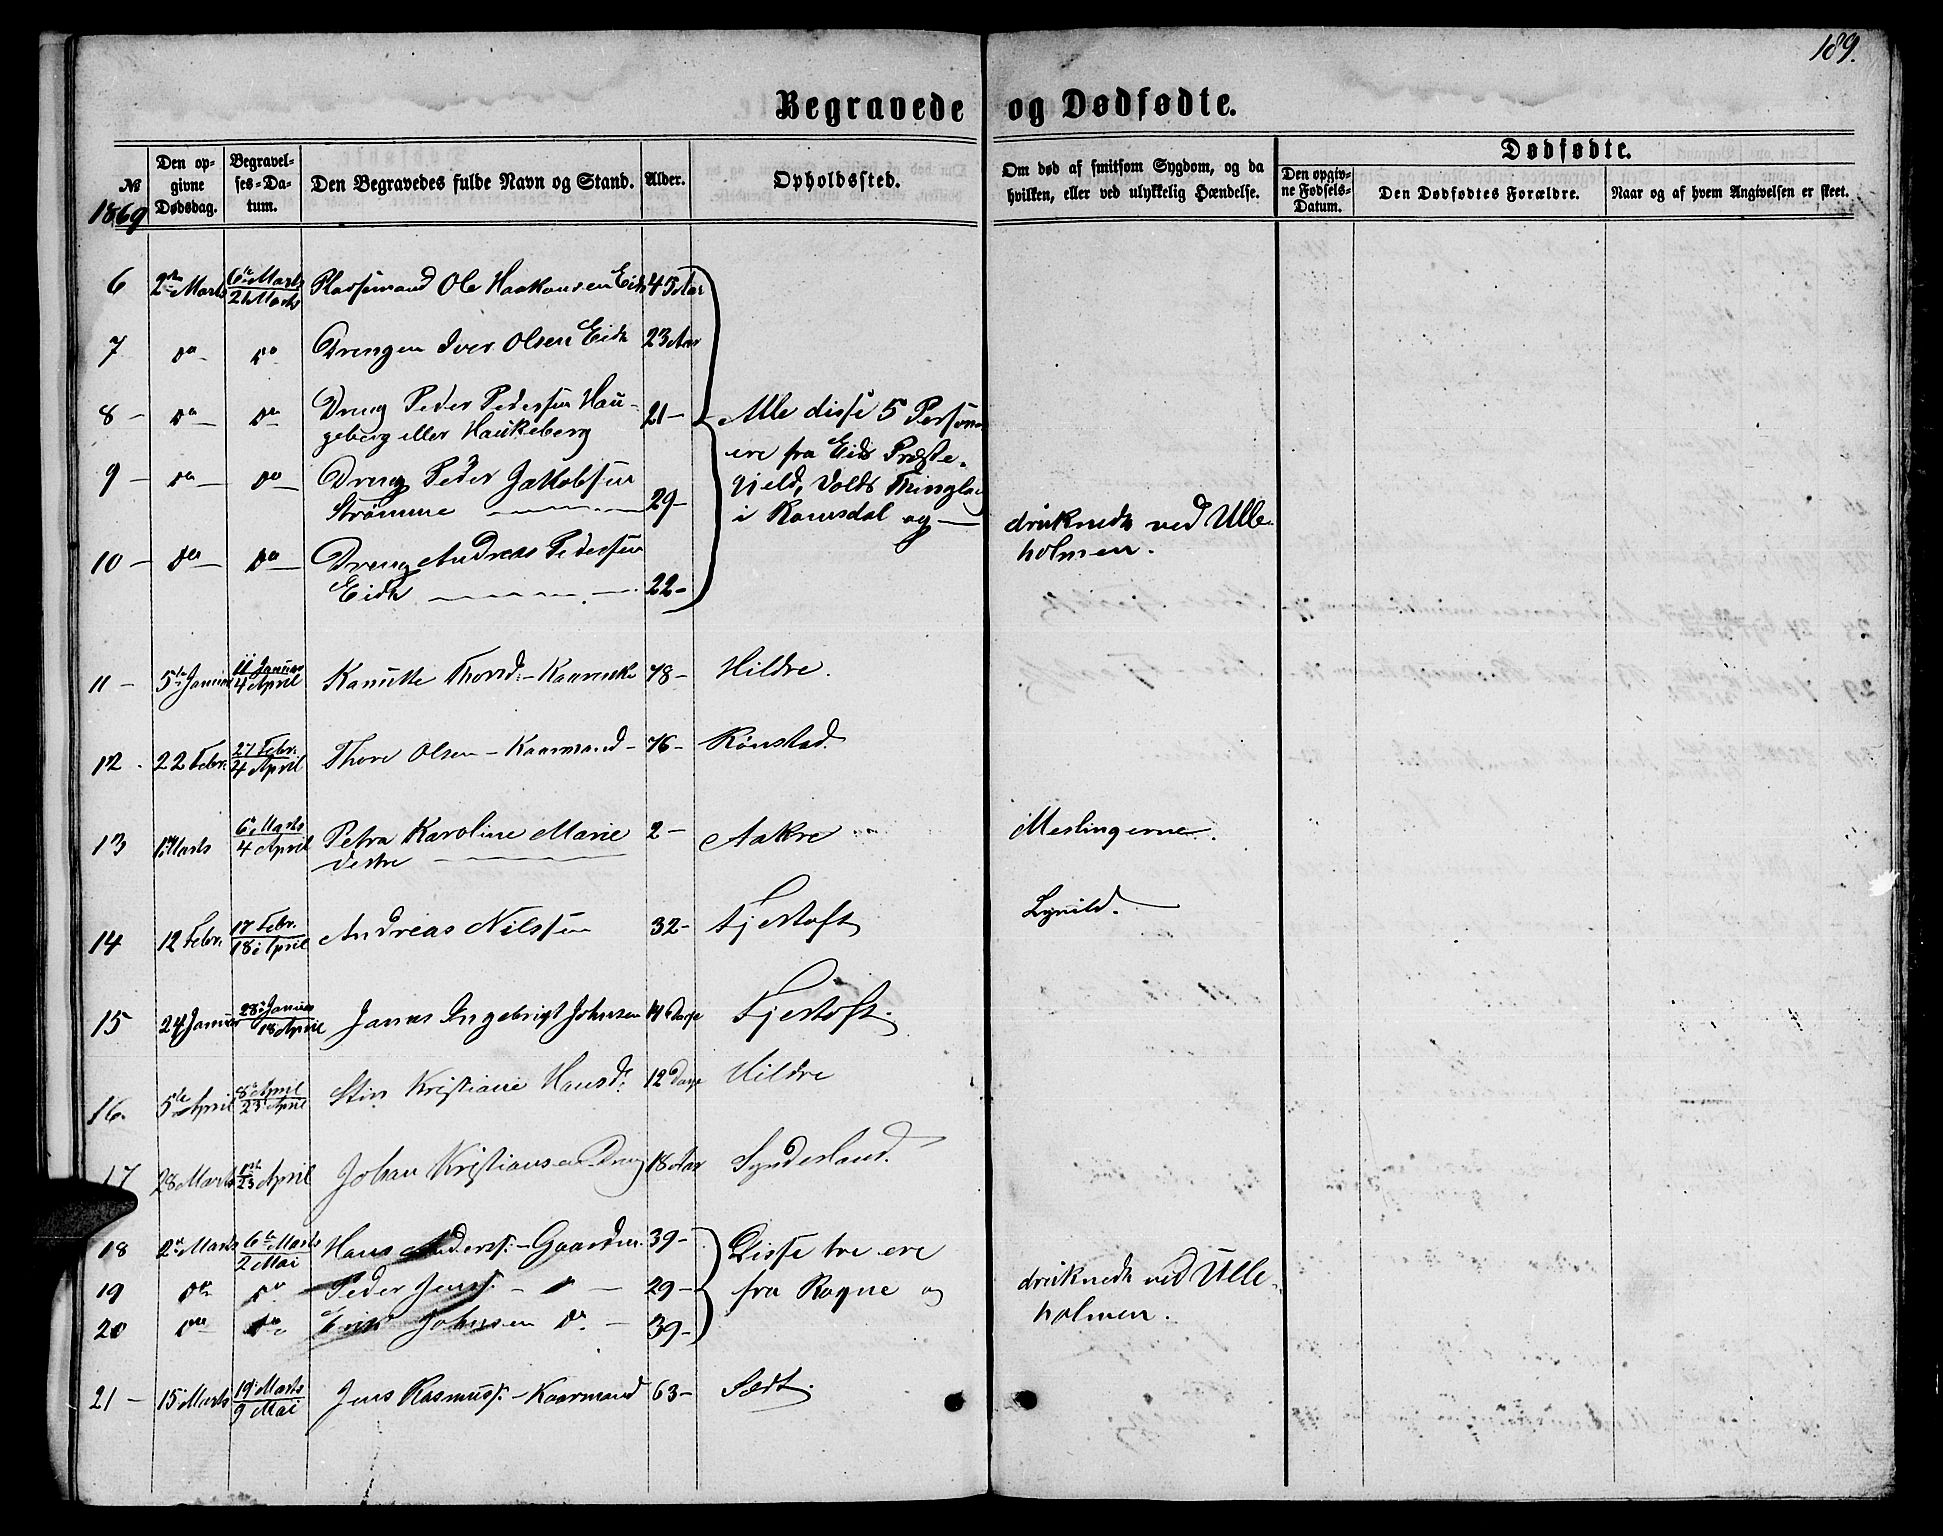 189.
Begravede og Dødfødte.
№
1869
Den opgivne Dødsdag.
Begravelses-Datum.
Den Begravedes fulde Navn og Stand.
Alder.
Opholdssted.
Om død af smitsom Sygdom, og da hvilken, eller ved ulykkelig Hændelse.
Dødfødte.
Den opgivne Fødsels-Datum.
Den Dødfødtes Forældre.
Naar og af hvem Angivelsen er skeet.
6 2den Marts 6te Marts / 21 Marts Plassemand Ole Haakonsen Eide 45 Aar
7 do do Drengen Iver Olsen Eide 23 Aar
8 - do do Dreng Peder Pedersen Hau-
geberg eller Haukeberg 21 -
9 - do do Dreng Peder Jakobsen
Strømme 29 -
10 - do do Dreng Andreas Pedersen
Eide 22 -
Alle disse 5 Personer
ere fra Eids Præste-
gjeld, Volds Thinglag
i Romsdal og
druknede ved Ulle-
holmen.
11 - 5te Januar 11 Januar / 4 April Kanutte Thorsd: - Kaarenke 78 - Hildre.
12 - 22 Febr. 27 Febr. / 4 April Thore Olsen - Kaarmand - 76 - Rønstad.
13 1 Marts 6te Marts / 4 April Petra Karoline Marie
2 - Aakre Meslingerne.
14 12 Febr. 17 Febr. / 18 April Andreas Nilssen 32 - Fjertoft
15 24 Januar 28 Januar / 18 April Jonas Ingebrigt Johnsen 14 Dage Fjertoft.
16. 5te April 8de April / 25 April Stine Kristiane Hansd: 12 Dage Hildre
17 28 Marts April Johan Kristiansen Dreng 18 Aar Synderland.
18 2den Marts 6te Marts / 2 Mai Hans Anders: - Gaardm. 39 -
19 do do Peder Jens: - 29 -
20 do do Erik Johnsen do - 39 -
Disse tre ere
fra Rogne og
druknede ved Ulle-
holmen.
21 - 15 Marts 19 Marts / 9 Mai Jens Rasmuss: - Kaarmand 63 -